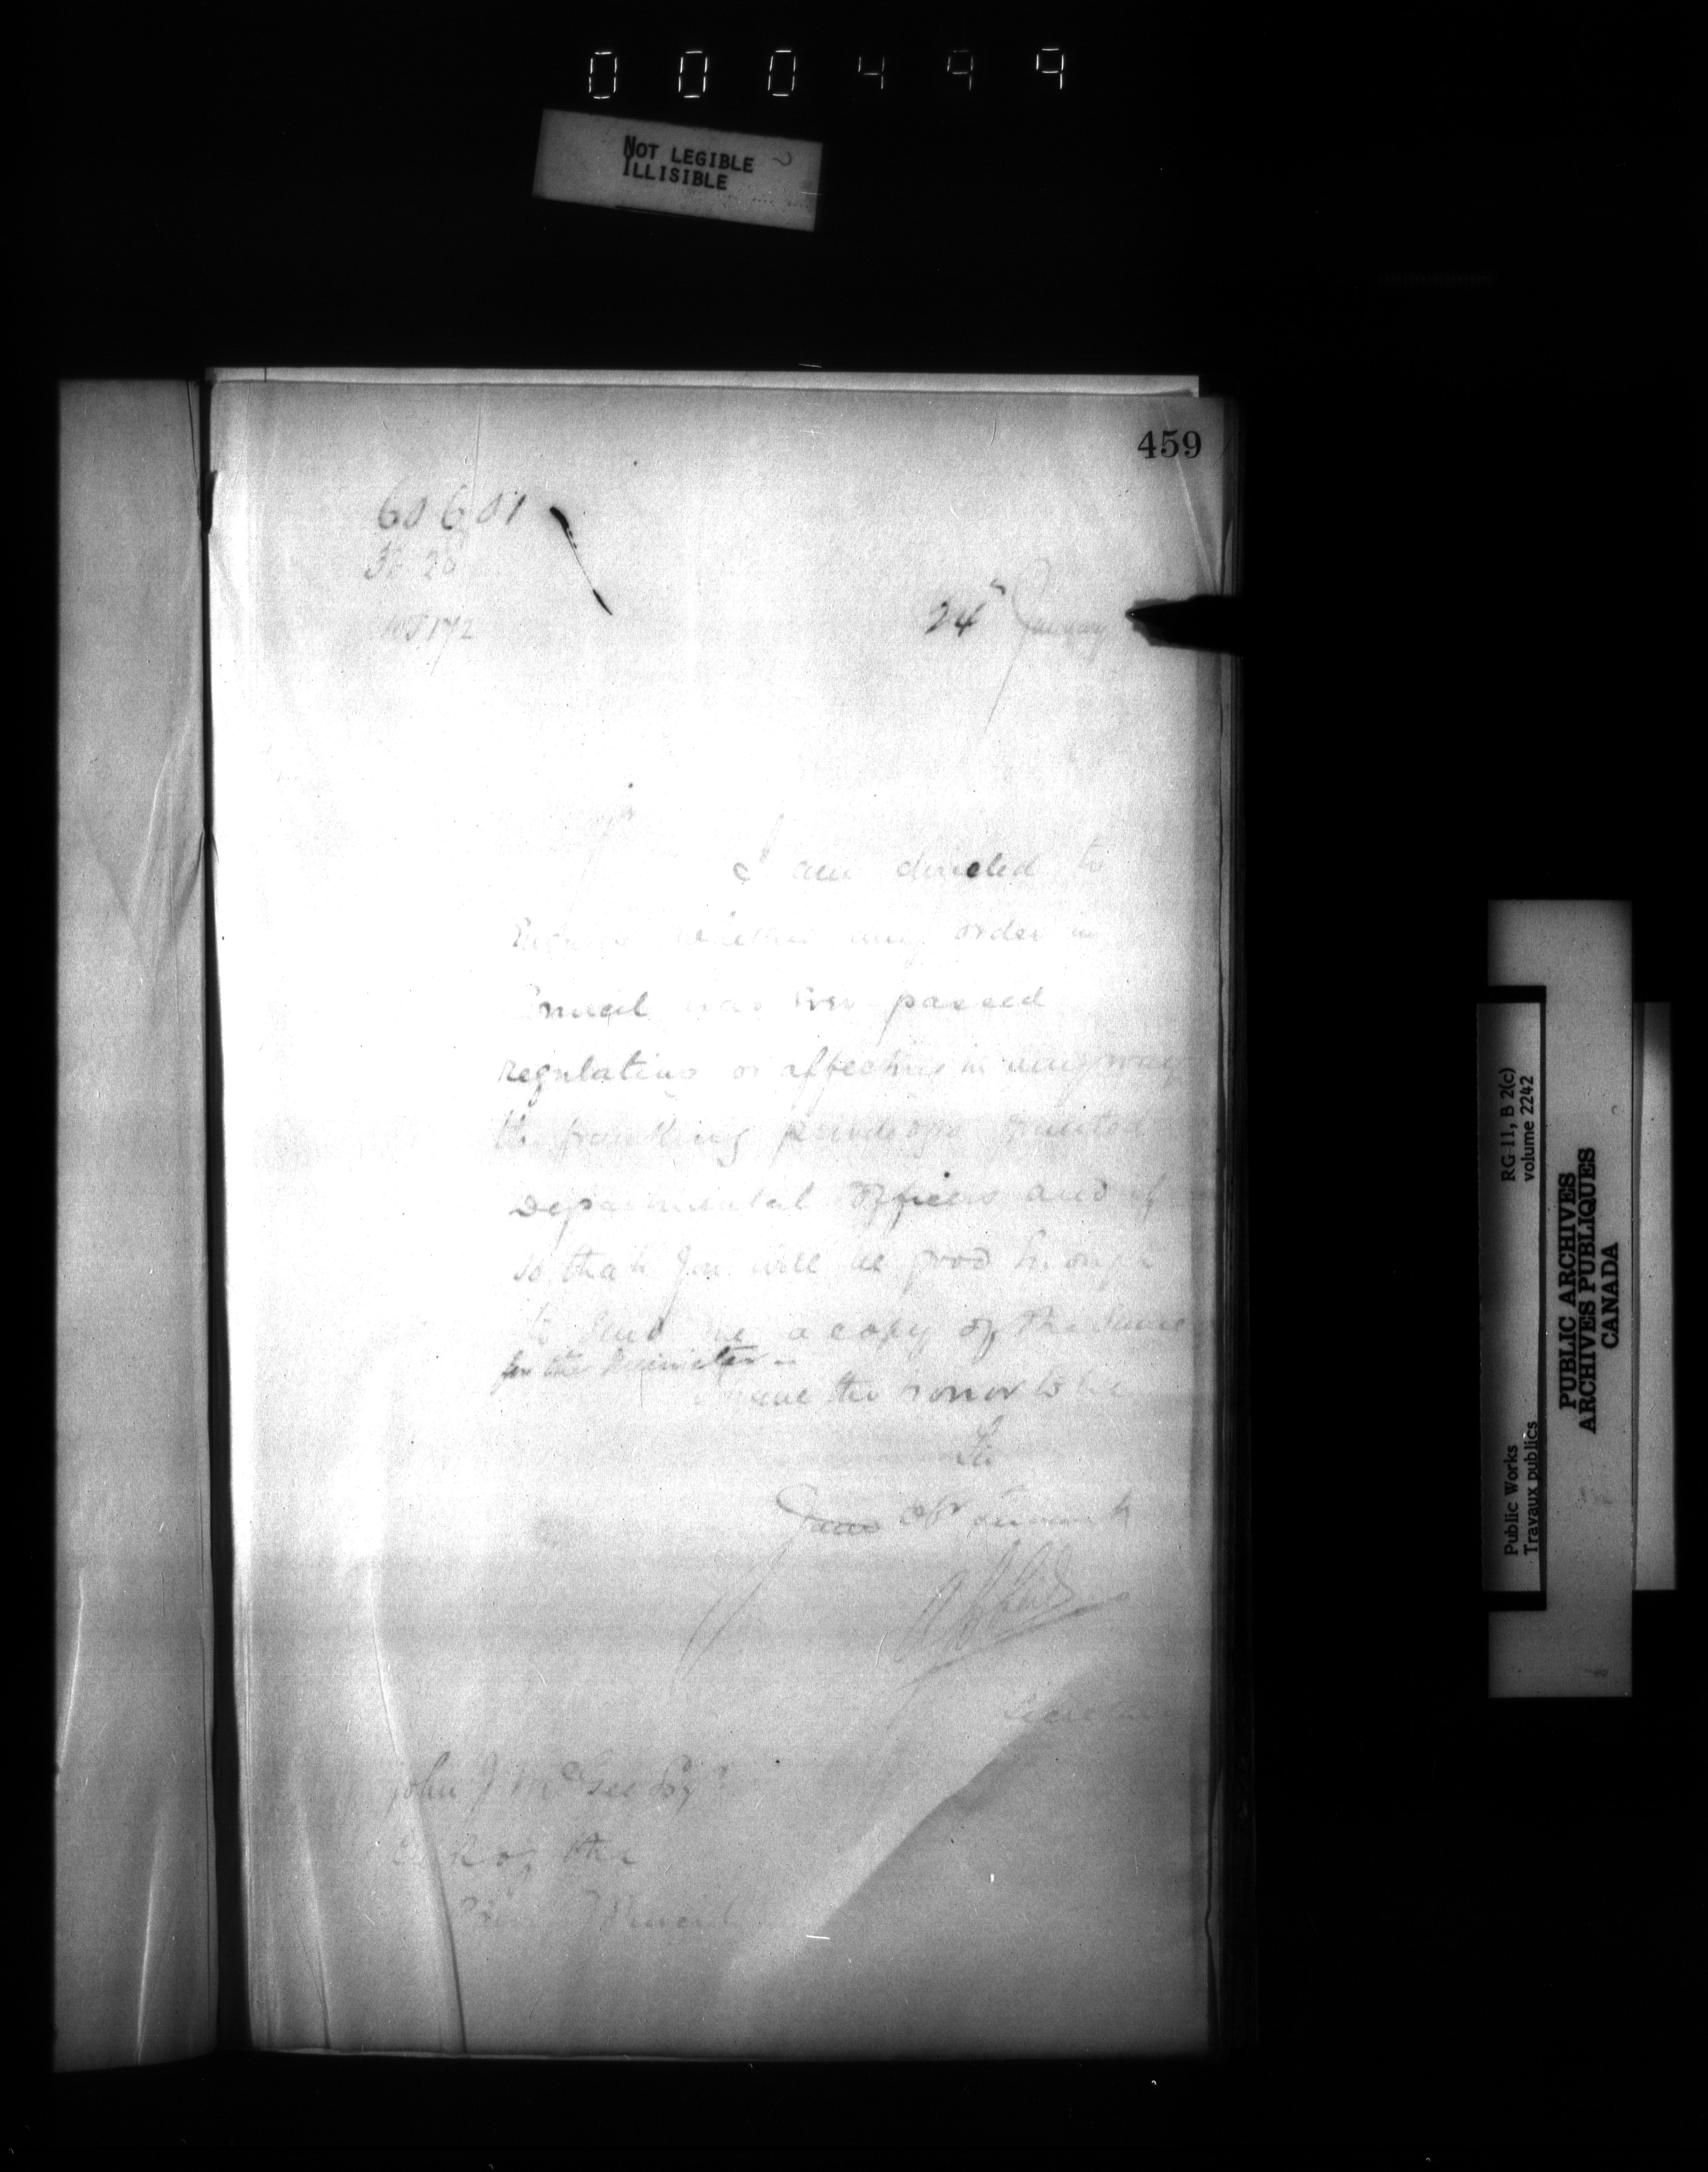 000499
NOT LEGIBLE
ILLISIBLE
459
60601
24th January
Sir
I am directed to
Enquire whether any order in
Council was ever passed
regulating or affecting in any way
the franking privilege granted
Departmental Officers and if
so that you will be good Enough
to send me a copy of the same
for the Minister—
I have the honor to be
Sir
Your obt Servant
Secretary
John J McGee Esqr
Clerk of the
Privy Council
RG 11, B 2(c)
volume 2242
Public Works
Travaux publics
PUBLIC ARCHIVES
ARCHIVES PUBLIQUES
CANADA